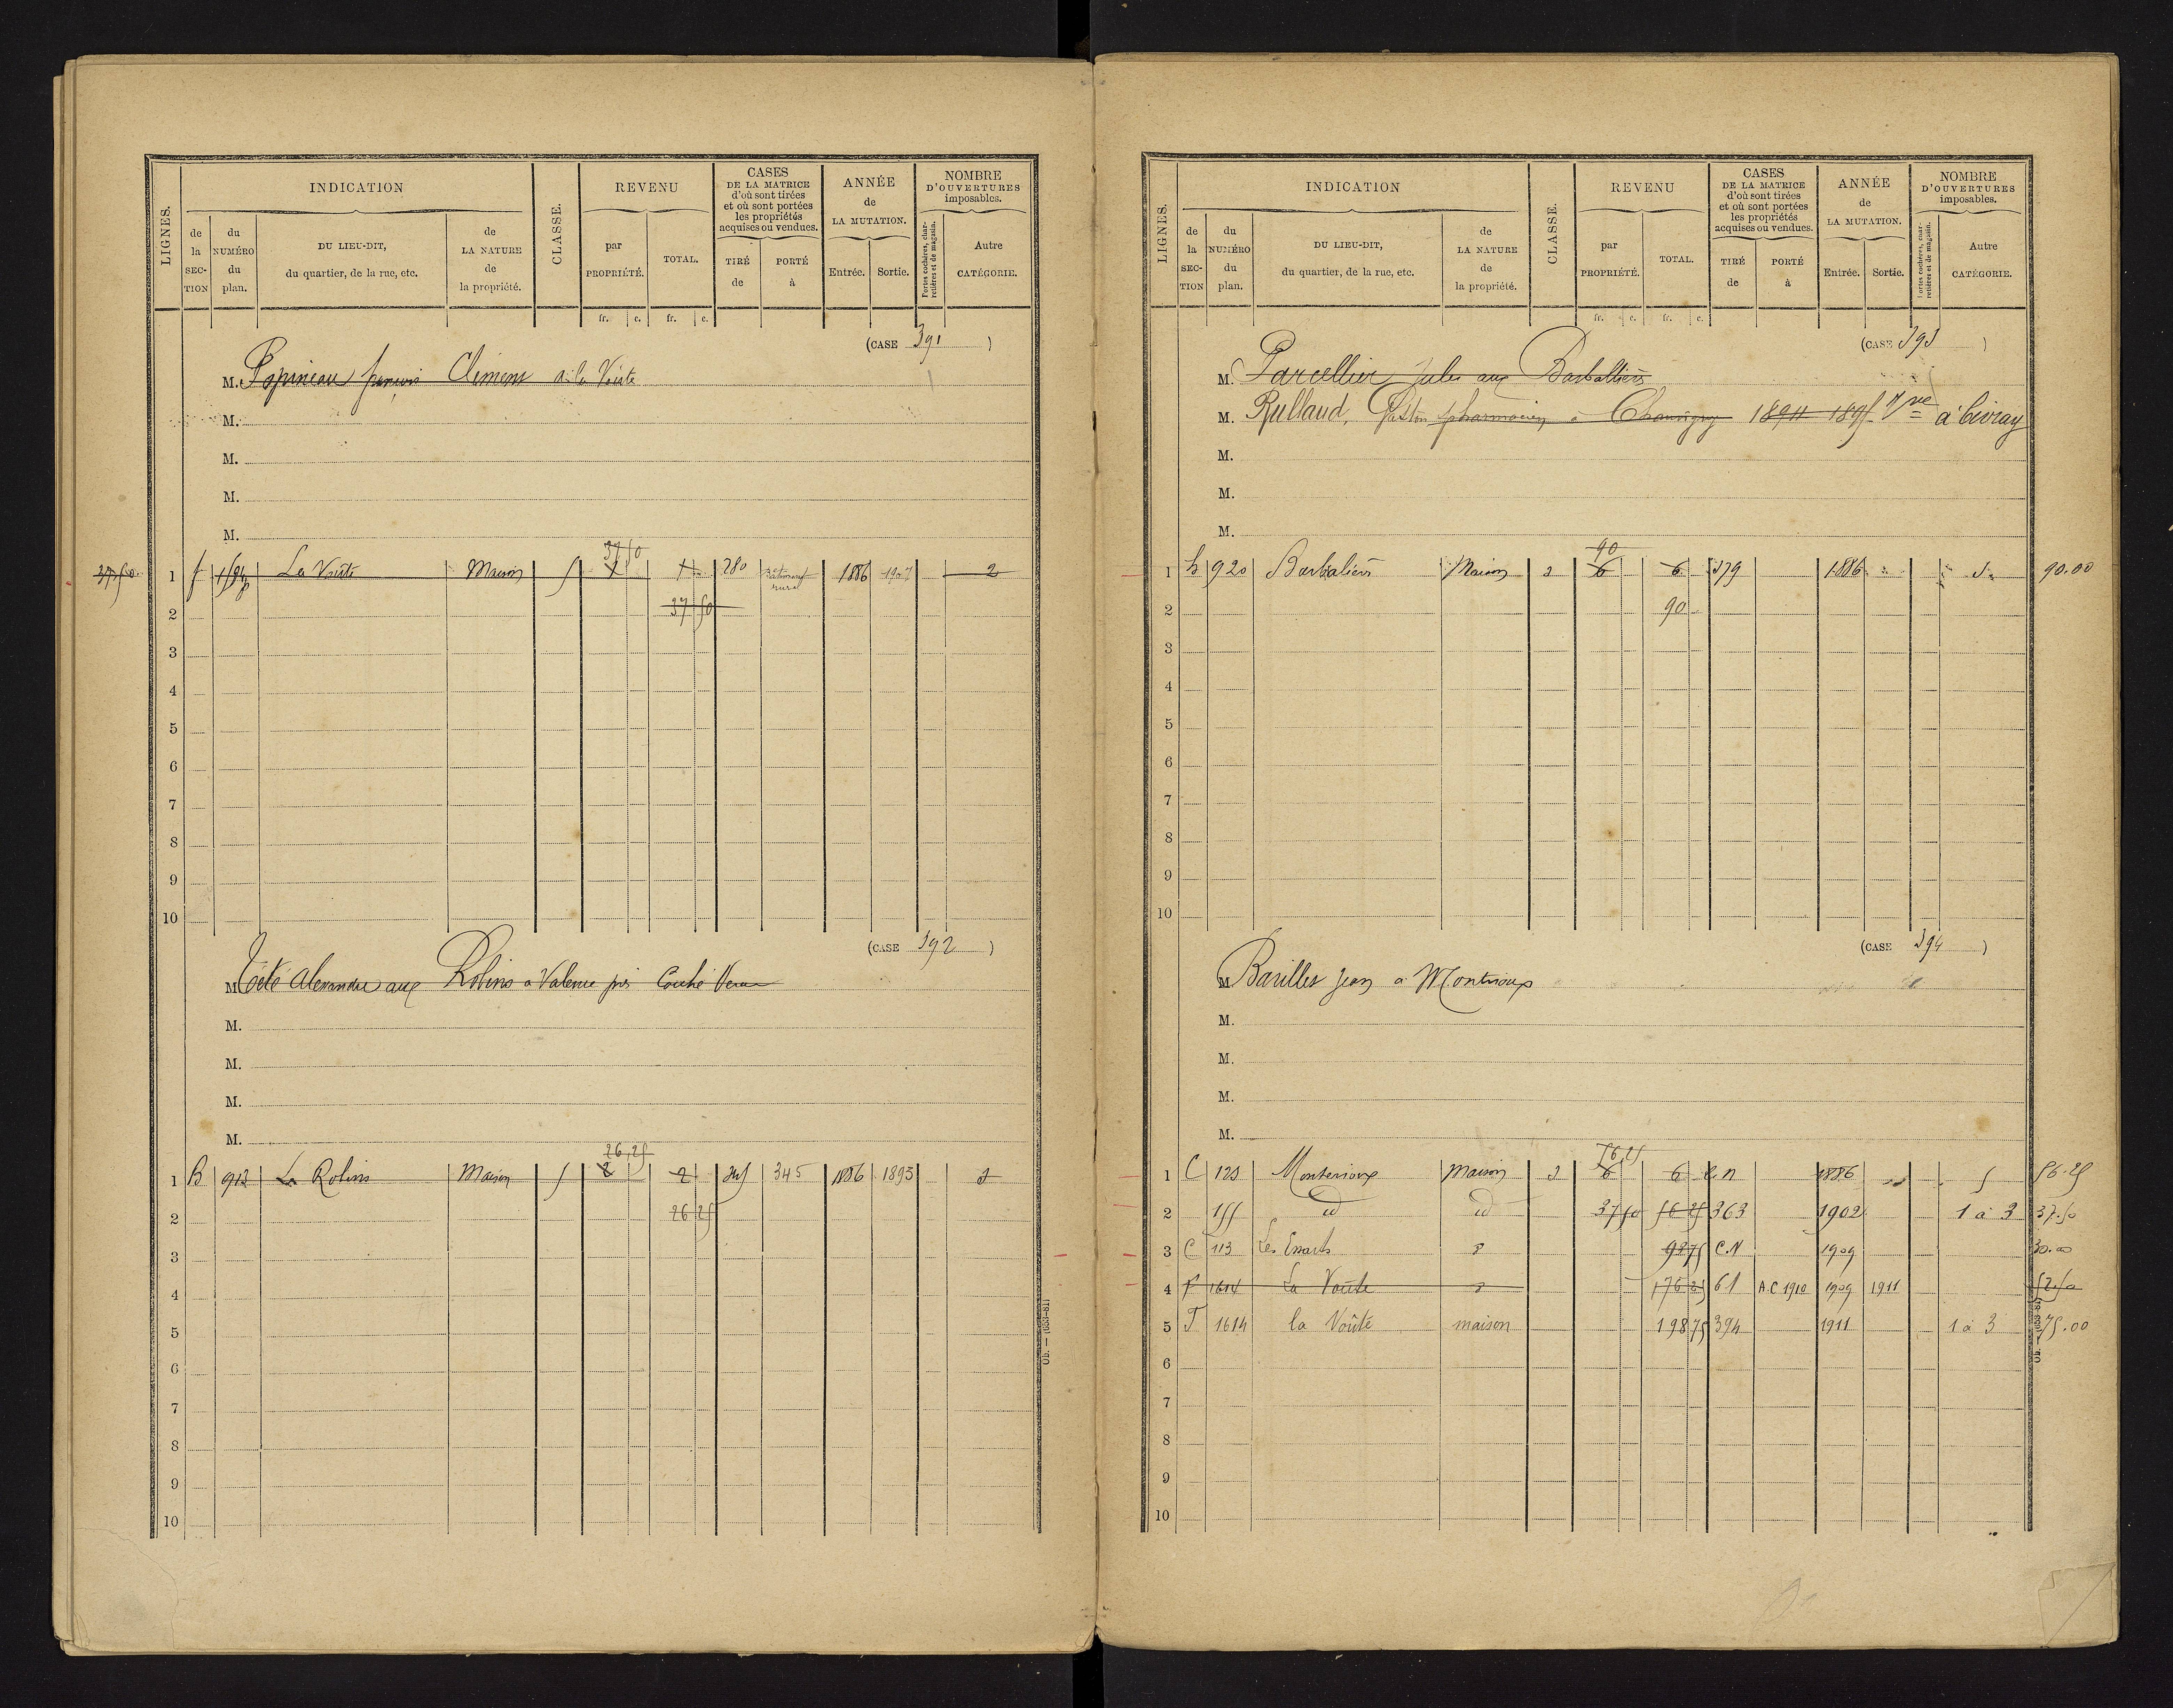 LIGNES.
INDICATION
de la SECTION
du NUMÉRO du plan.
DU LIEU-DIT, du quartier, de la rue, etc.
de LA NATURE de la propriété.
CLASSE.
REVENU
par PROPRIÉTÉ.
TOTAL.
CASES DE LA MATRICE d'où sont tirées et où sont portées les propriétés acquises ou vendues.
TIRÉ de
PORTÉ à
ANNÉE de LA MUTATION.
Entrée.
Sortie.
NOMBRE D'OUVERTURES imposables.
Portes cochères, charretières et de magasin.
Autre CATÉGORIE.
fr. c. fr. c.
(CASE 391)
M. Papineau françois Clément à la Voûte
M.
M.
M.
M.
37 50
37.50 1 f La Voûte Maison 5 280 1886 1907 2
2 37 50
3
4
5
6
7
8
9
10
(CASE 392)
M Alexandre aux Robins à Valence près Couhé
M.
M.
M.
M.
26,25
1 B 913 Le Robins Maison 5 2 2 345 1886 1895 3
2 26 25
3
4
5
6
7
8
9
10
Ob. — (633-81)
LIGNES.
INDICATION
de la SECTION
du NUMÉRO du plan.
DU LIEU-DIT, du quartier, de la rue, etc.
de LA NATURE de la propriété.
CLASSE.
REVENU
par PROPRIÉTÉ.
TOTAL.
CASES DE LA MATRICE d'où sont tirées et où sont portées les propriétés acquises ou vendues.
TIRÉ de
PORTÉ à
ANNÉE de LA MUTATION.
Entrée.
Sortie.
NOMBRE D'OUVERTURES imposables.
Portes cochères, charretières et de magasin.
Autre CATÉGORIE.
fr. c. fr. c.
(CASE 393)
M. Parcellier Jules aux Barballiers
M. Rullaud, Gaston pharmacien à Chauvigny 1894 1895 à Civray
M.
M.
M.
90
1 b 920 Barbaliers Maison 3 6 6 379 1886 90.00
2 90
3
4
5
6
7
8
9
10
(CASE 394)
M Barilles Jean à Montrioux
M.
M.
M.
M.
56,25
1 C 123 Monterioux maison 3 6 6 C.n 1886 5 56.25
2 155 id id 37 50 56 25 363 1902 1 à 3 37.50
3 C 113 Les Essarts 98 75 C.N 1909 30.00
4 F 1614 La Voûte 61 A.C 1910 1909 1911 52.50
5 F 1614 la Voûte maison 198 75 394 1911 1 à 3 75.00
6
7
8
9
10
Ob. — (633-81)